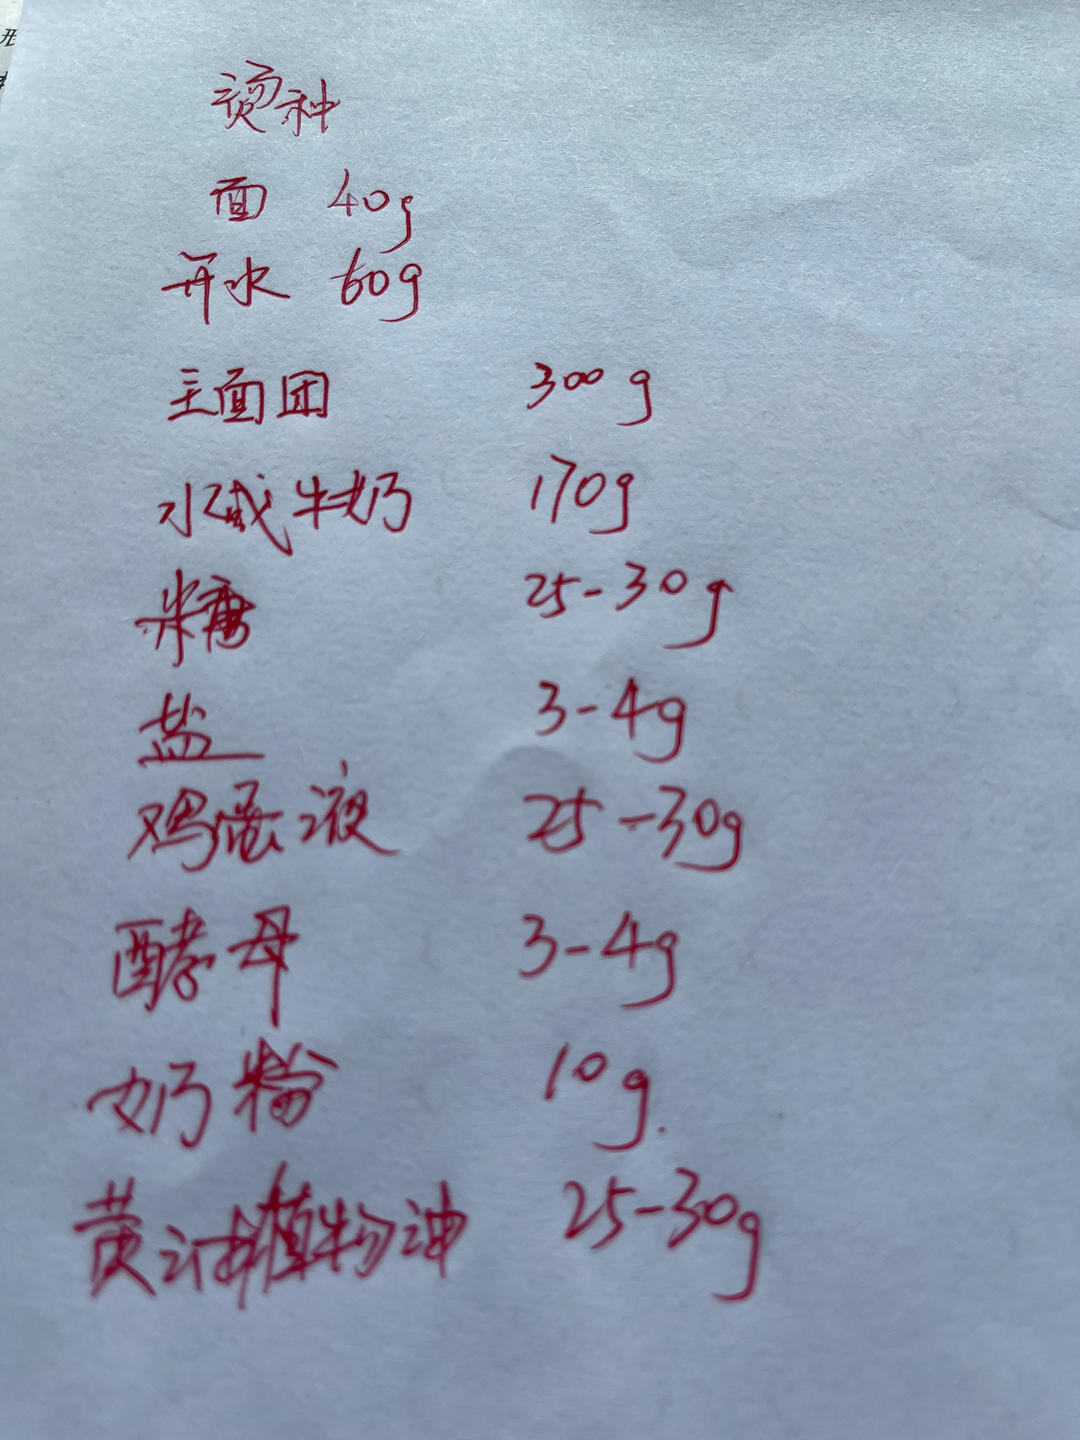 烫种
面 40g
开水 60g
主面团 300g
水或牛奶 170g
糖 25-30g
盐 3-4g
鸡蛋液 25-30g
酵母 3-4g
奶粉 10g.
黄油植物油 25-30g